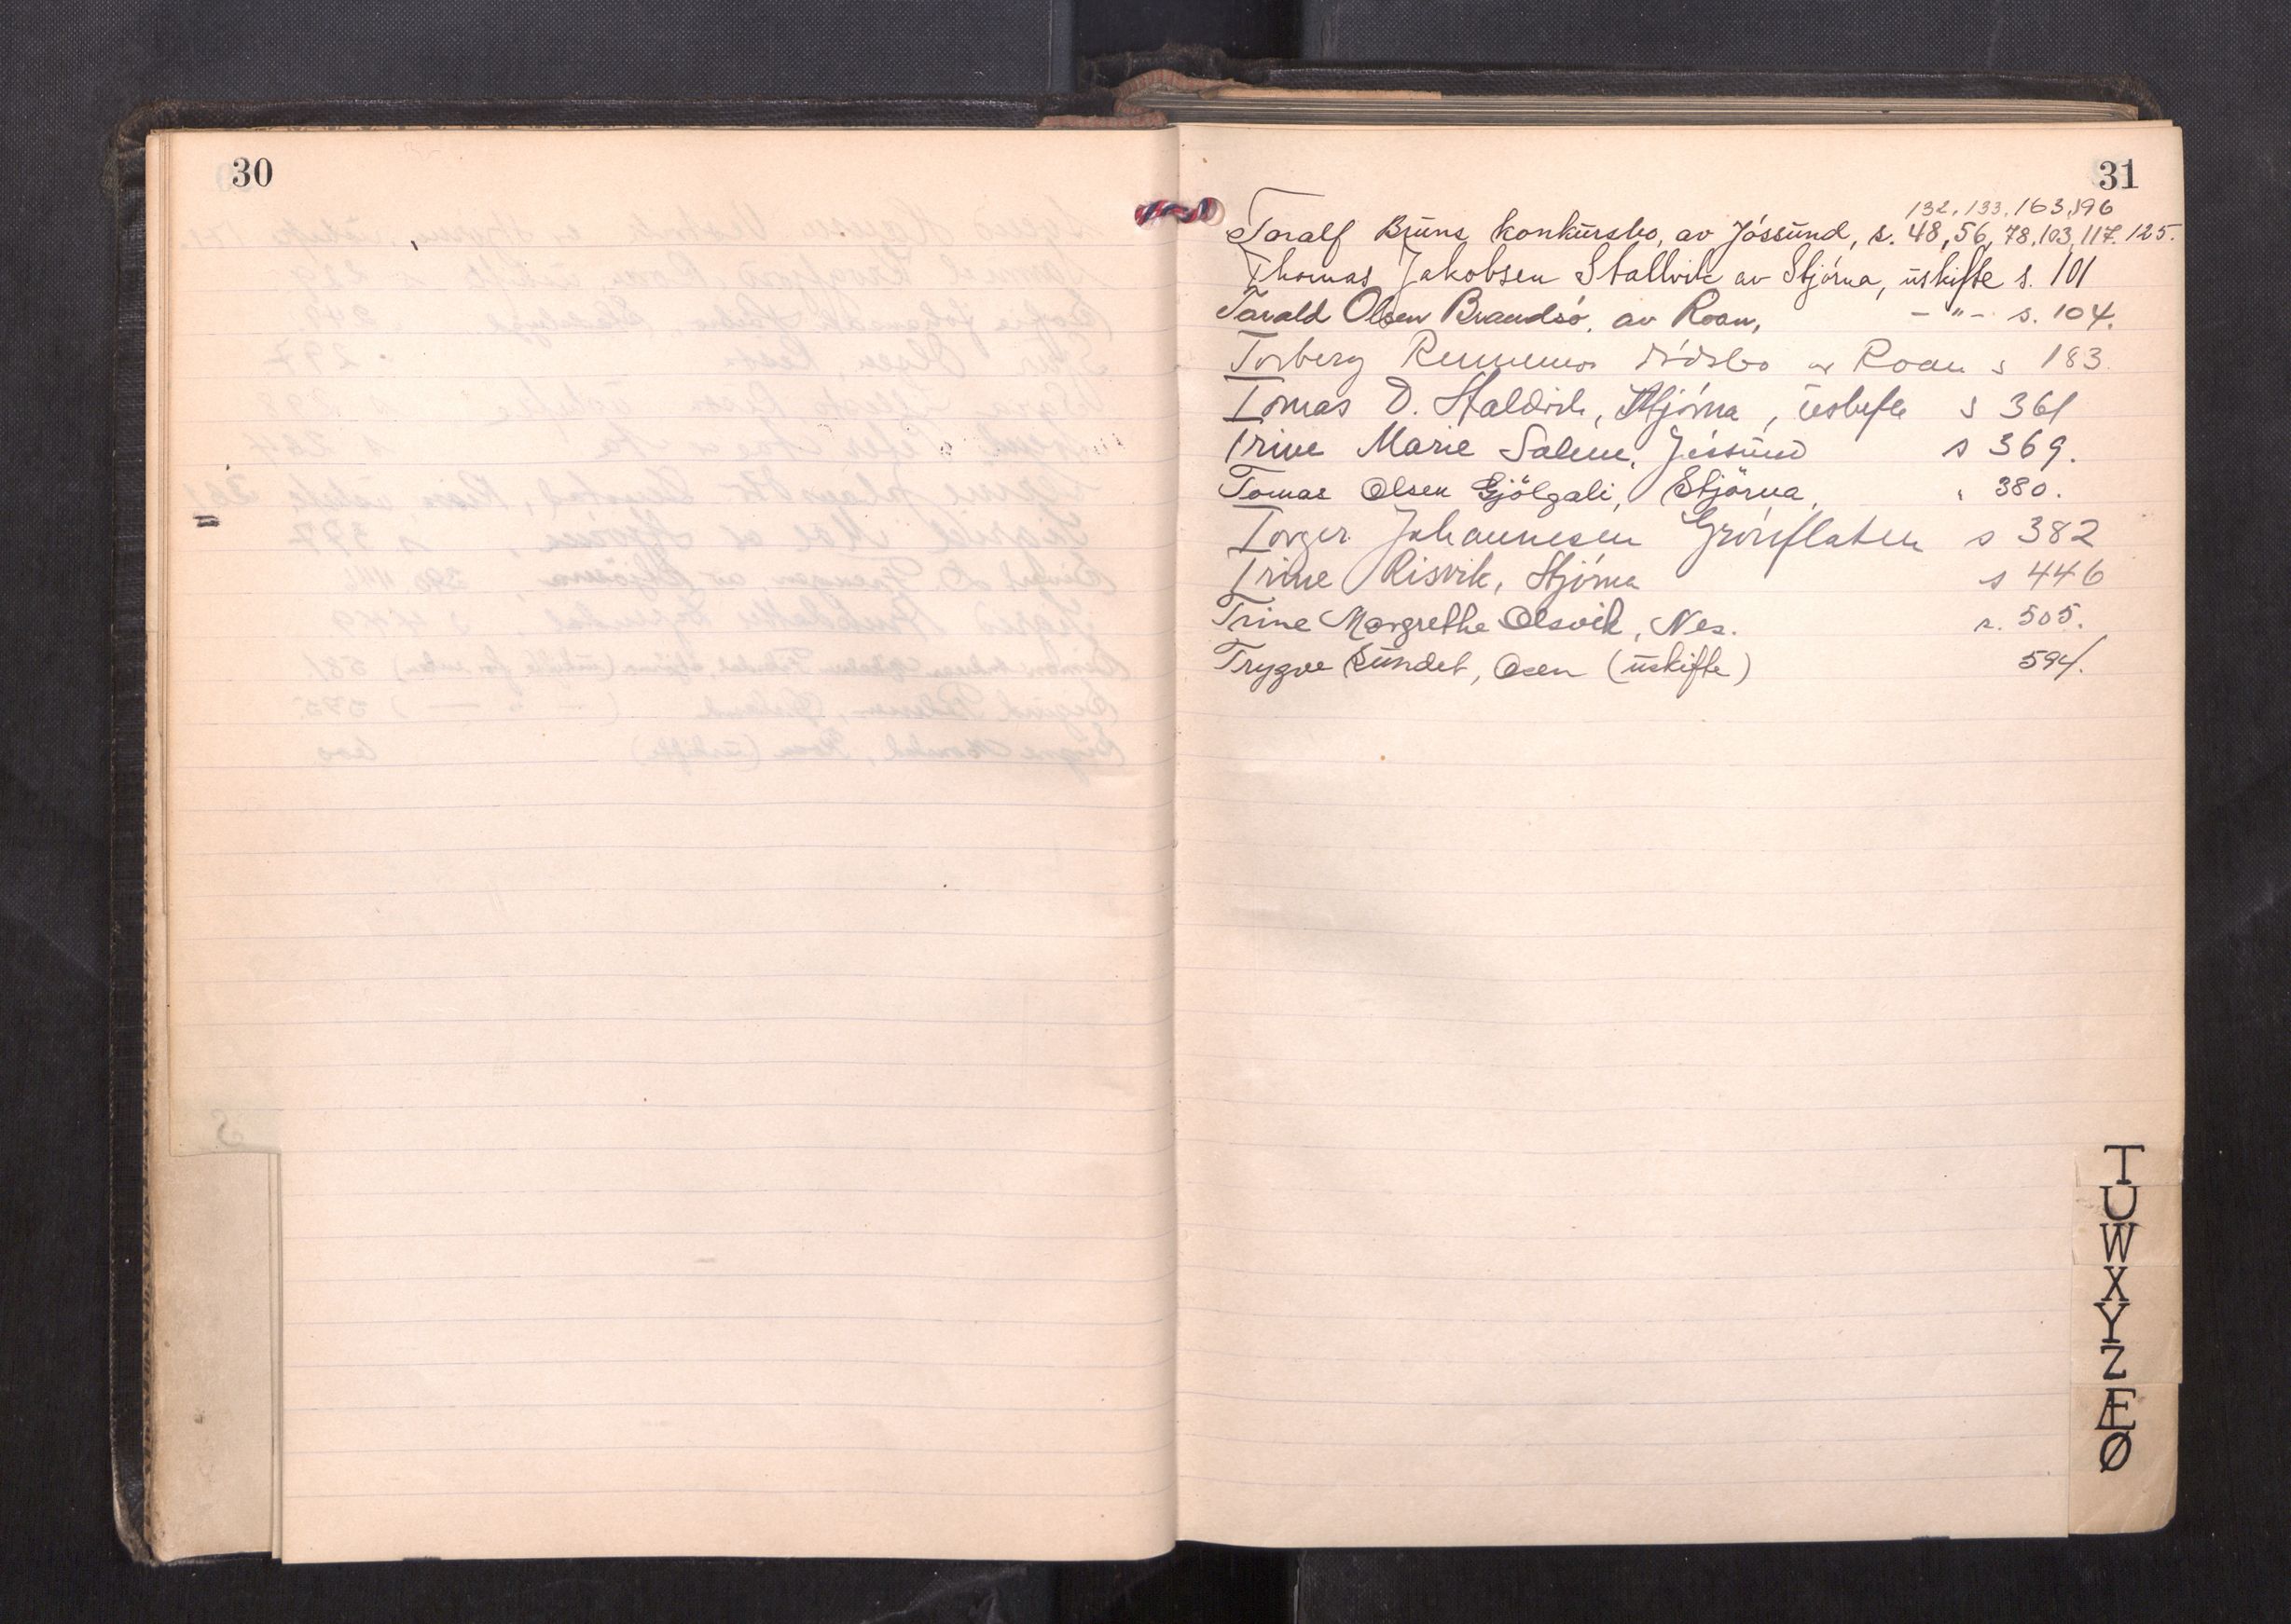 30
31
132, 133, 163, 196
Toralf Bruns konkursbo, av Jössund, s. 48, 56, 78, 103, 117. 125.
Thomas Jakobsen Stallvik av Stjørna, uskifte s. 101
Tarald Olsen Brandsø, av Roan, -"- s. 104.
Torberg dødsbo av Roan s 183.
Tomas D. Staldvik, Stjørna, uskifte s 361
Trine Marie Salene, Jøssund s 369.
Tomas Olsen Gjölgali, Stjörna, " 380.
Torger Johannesen Grønflaten s 382
Trine Risvik, Stjørna s 446
Trine Margrethe Olsvik, Nes. s. 505.
Trygve Sundet, Osen (uskifte) 594.
T
U
W
X
Y
Z
Æ
Ø